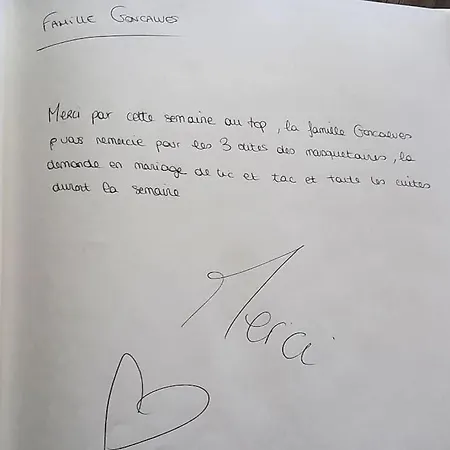 FAMILLE GONCALVES
Merci par cette semaine au top, la famille Goncalves
vous remercie pour les 3 dites des mousquetaires, la
demande en mariage de tic et tac et toute les cuites
durant la semaine
Merci